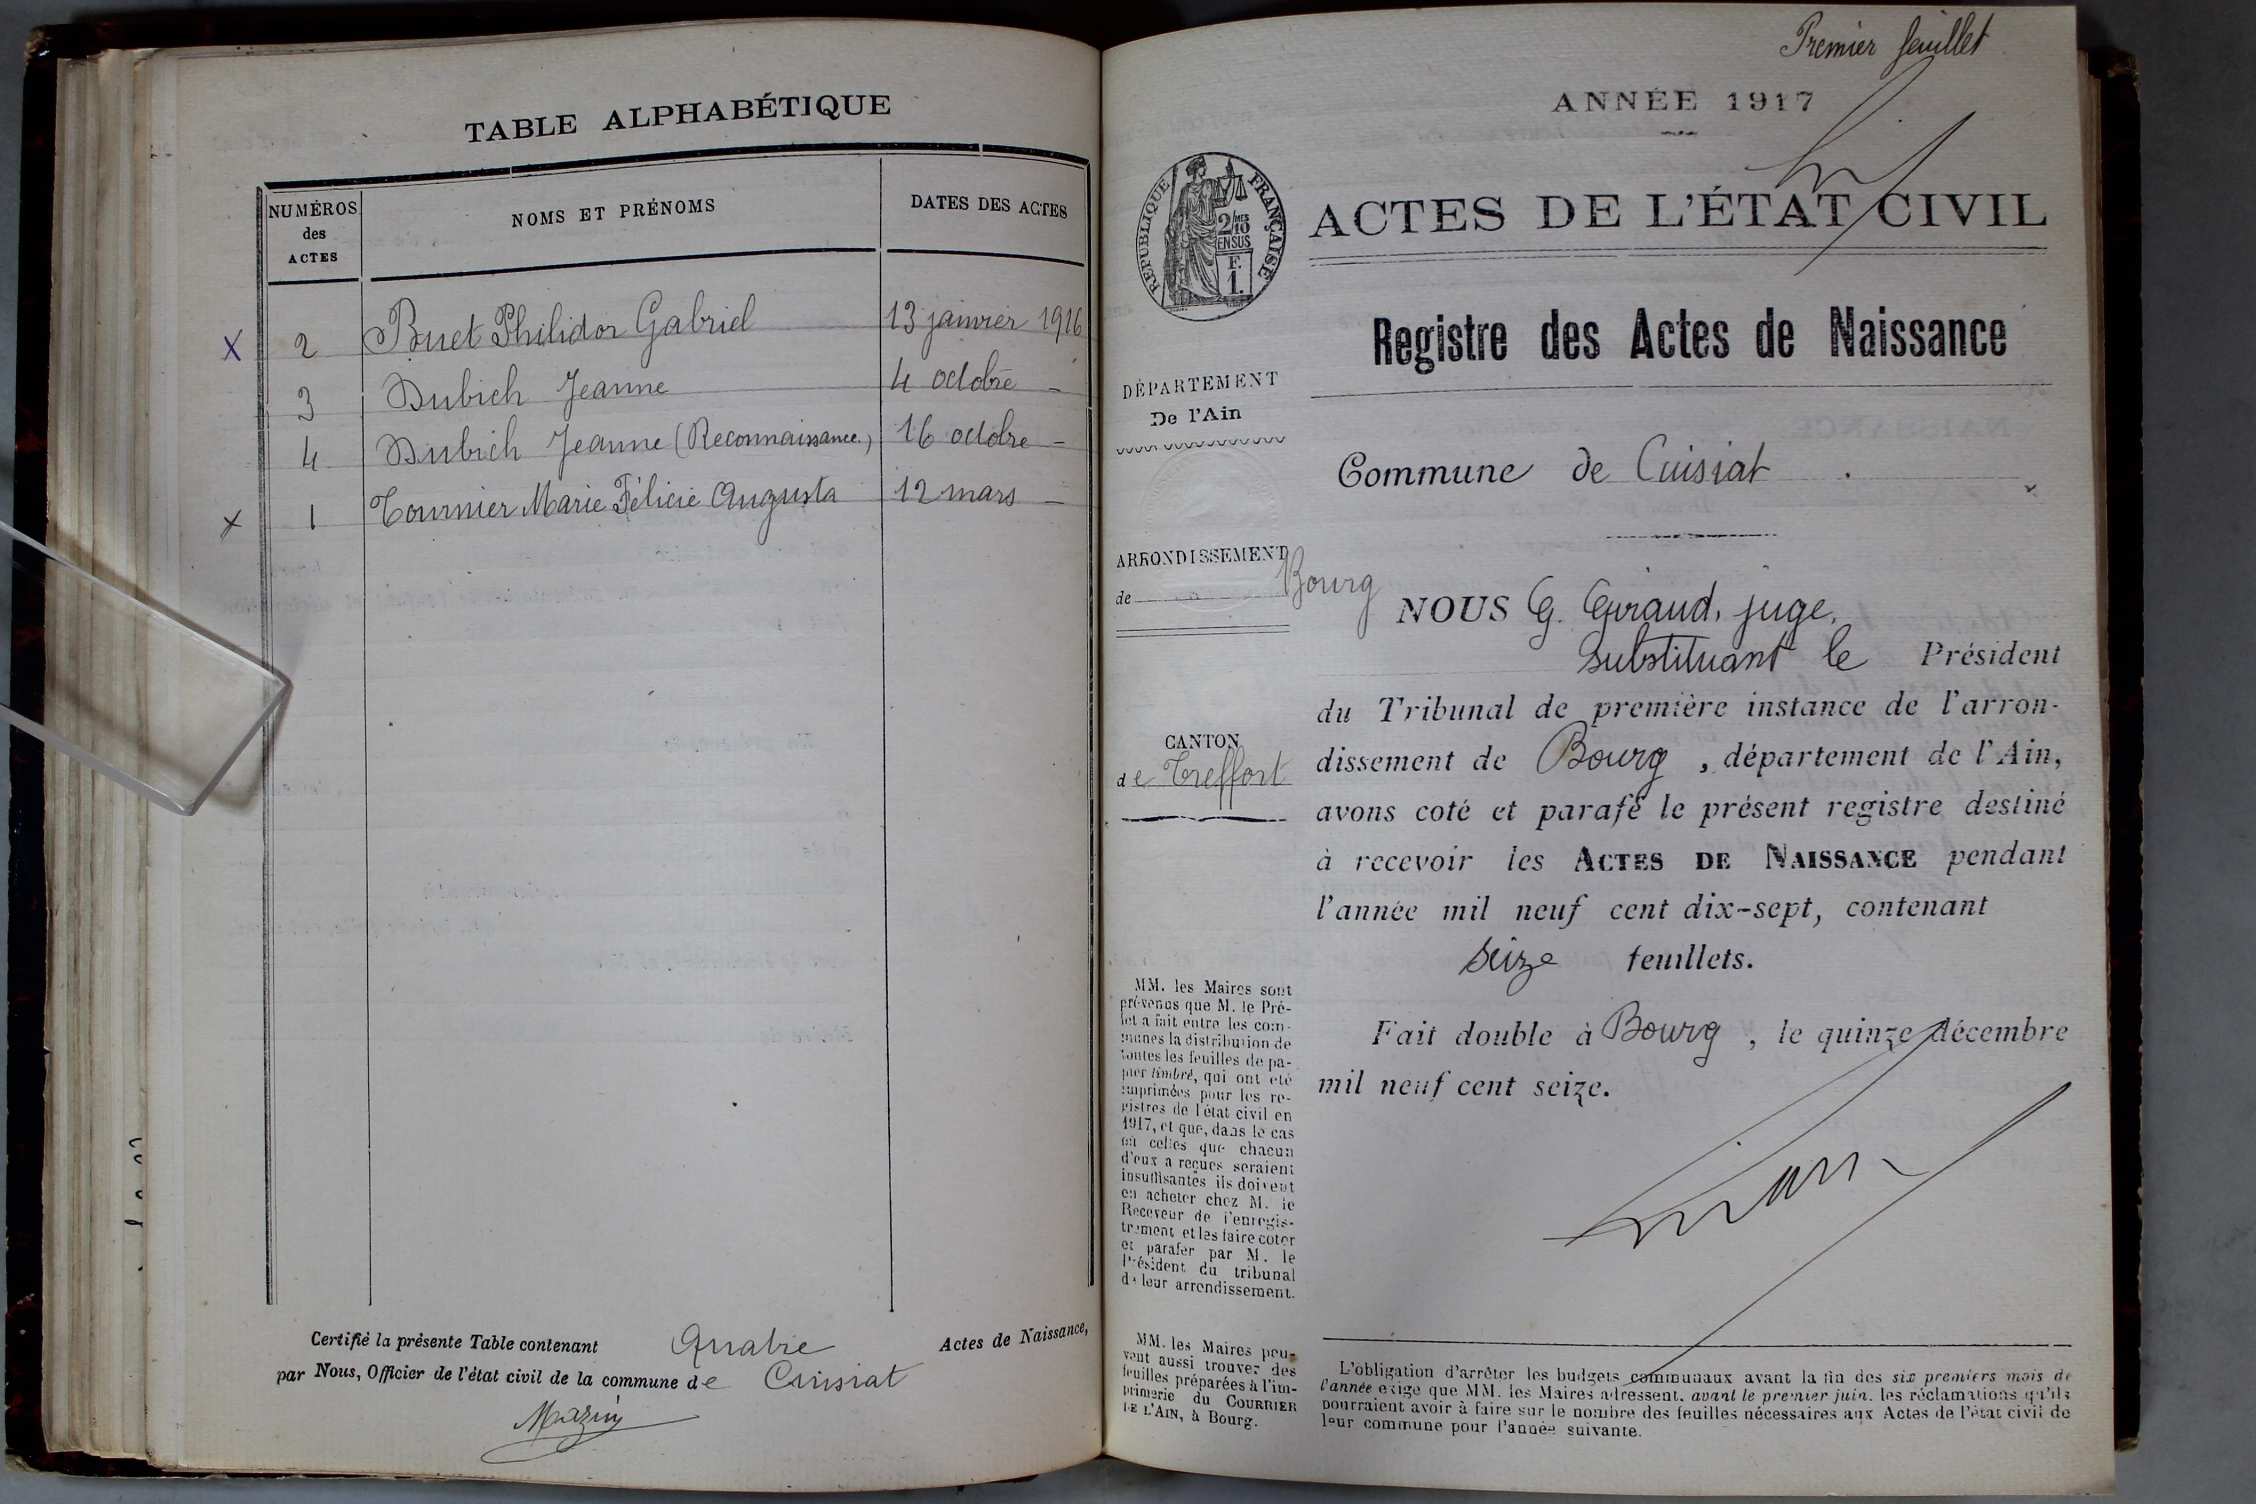 TABLE ALPHABÉTIQUE
NUMÉROS
des
ACTES
NOMS ET PRÉNOMS
DATES DES ACTES
X 2 Buet Philidor Gabriel 13 janvier 1916
3 Dubich Jeanne 4 octobre —
4 Dubich Jeanne (Reconnaissance.) 16 octobre —
x 1 Tournier Marie Félicie Augusta 12 mars —
Certifié la présente Table contenant Quatre Actes de Naissance,
par Nous, Officier de l'état civil de la commune de Cuisiat
Premier feuillet
ANNÉE 1917
ACTES DE L'ÉTAT CIVIL
Registre des Actes de Naissance
RÉPUBLIQUE FRANÇAISE
2/MES
10
EN SUS
F.
1.
DÉPARTEMENT
De l'Ain
ARRONDISSEMENT
de Bourg
CANTON
de Treffort
MM. les Maires sont
prévenus que M. le Pré-
fet a fait entre les com-
munes la distribution de
toutes les feuilles de pa-
pier timbré, qui ont été
imprimées pour les re-
gistres de l'état civil en
1917, et que, dans le cas
où celles que chacun
d'eux a reçues seraient
insuffisantes ils doivent
en acheter chez M. le
Receveur de l'enregis-
trement et les faire coter
et parafer par M. le
Président du tribunal
de leur arrondissement.
MM. les Maires peu-
vent aussi trouver des
feuilles préparées à l'im-
primerie du COURRIER
DE L'AIN, à Bourg.
Commune de Cuisiat
NOUS G. Giraud, juge,
substituant le Président
du Tribunal de première instance de l'arron-
dissement de Bourg, département de l'Ain,
avons coté et parafé le présent registre destiné
à recevoir les ACTES DE NAISSANCE pendant
l'année mil neuf cent dix-sept, contenant
seize feuillets.
Fait double à Bourg, le quinze décembre
mil neuf cent seize.
L'obligation d'arrêter les budgets communaux avant la fin des six premiers mois de
l'année exige que MM. les Maires adressent, avant le premier juin, les réclamations qu'ils
pourraient avoir à faire sur le nombre des feuilles nécessaires aux Actes de l'état civil de
leur commune pour l'année suivante.